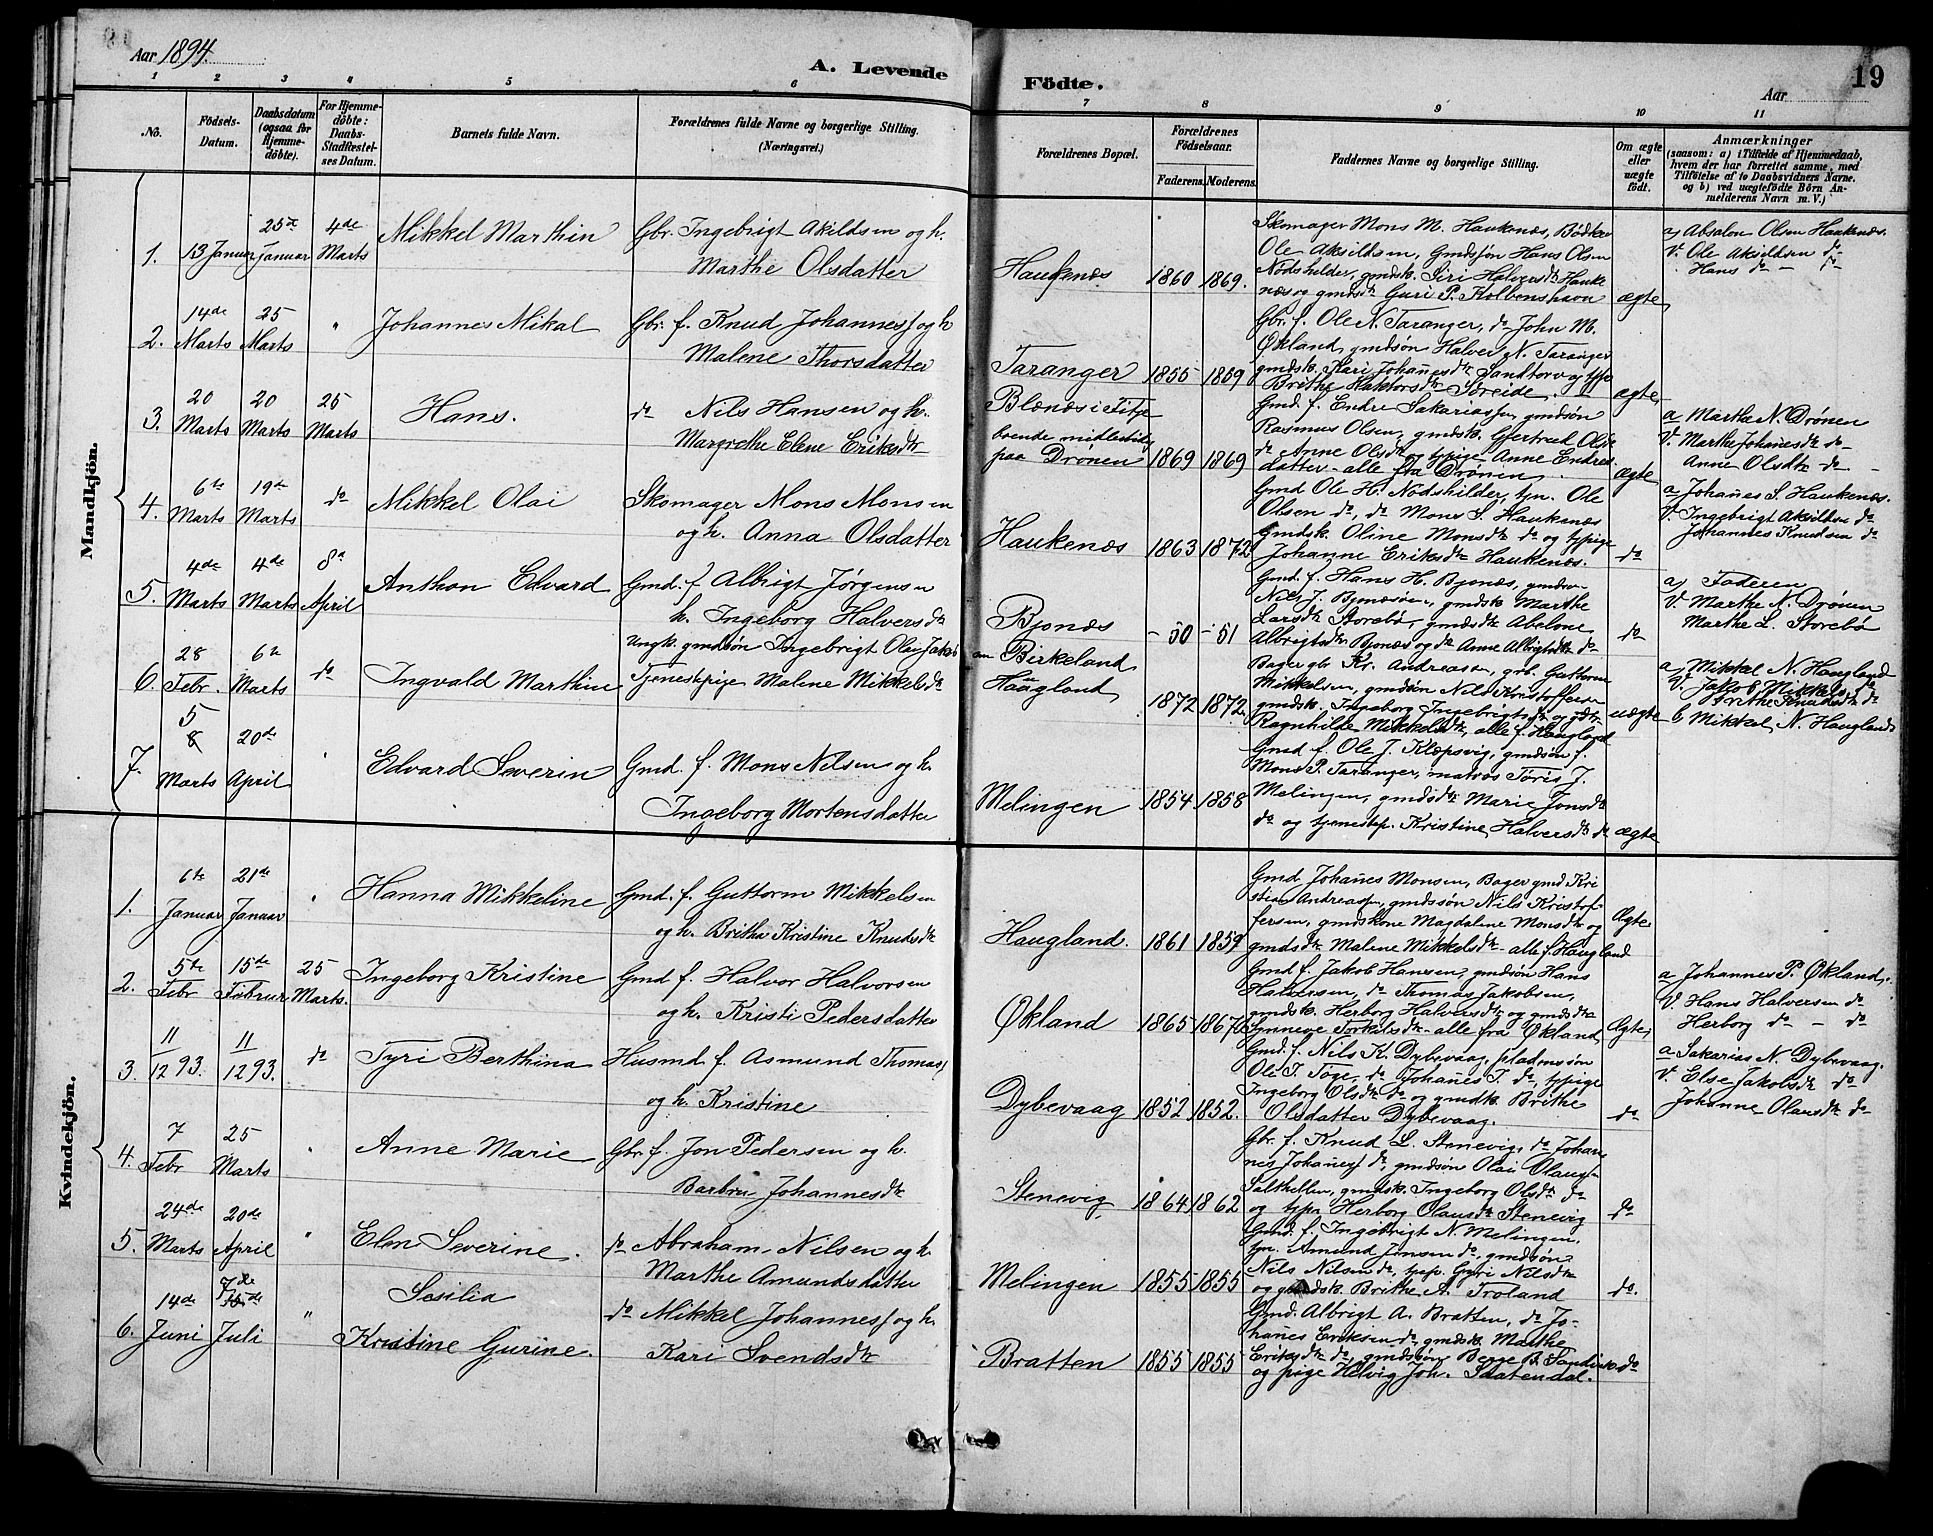 Aar 1894.
A. Levende Födte.
Aar
19
1 2 3 4 5 6 7 8 9 10 11
No.
Födsels-Datum.
Daabsdatum (ogsaa for Hjemmedöbte).
For Hjemmedöbte: Daabs-Stadfæstelses Datum.
Barnets fulde Navn.
Forældrenes fulde Navne og borgerlige Stilling. (Næringsvei.)
Forældrenes Bopæl.
Forældrenes Födselsaar.
Faderens. Moderens.
Faddernes Navne og borgerlige Stilling.
Om ægte eller uægte födt.
Anmærkninger
(saasom: a) i Tilfælde af Hjemmedaab, hvem der har forrettet samme, med Tilföielse af to Daabsvidners Navne. og b) ved uægtefödte Börn Anmelderens Navn m. V.)
Mandkjön.
1. 13 Januar 25de Januar 4de Marts Mikkel Marthin
Gbr. Ingebrigt Akildsen og h.
Marthe Olsdatter
Haukenæs 1860 1869.
Skomager Mons M. Haukenæs, Bødker
Ole Aksildsen, Gmdsøn Hans Olsen
Nødshilder, gmdsk. Siri Halversdtr Hauke
næs og gmdsdtr Guri P. Kolbenshavn
ægte
a) Absalon Olsen Haukenæs.
V. Ole Aksildsen do
Hans do - do
2. 14de Marts 25 Marts " Johannes Mikal
Gbr. f. Knud Johanness og h
Malene Thorsdatter
Taranger 1855 1859
Gbr. f. Ole N. Taranger, do John M.
Økland, gmdsøn Halver N. Taranger
gmdsk. Kari Johañesdtr Sandtorv og tjp.
Brithe Soreide
ægte
3. 20 Marts 20 Marts 25 Marts Hans.
do Nils Hansen og h.
Margrethe Elene Eriksdtr
Blænæs i Fitje
boende midlertidig
paa Drønen 1869 1869
Gmd. f. Endre Sakariassen, gmdsøn
Rasmus Olsen, gmdsk. Gjertrud Olsdtr
do Anne Olsdtr og tjpige Anne Endres
datter - alle fra Drønen
ægte
a Martha N. Drønen
V. Marthe Johañesdtr do
Anne Olsdtr do
4. 6te Marts 19de Marts do Mikkel Olai
Skomager Mons Monsen
og h. Anna Olsdatter
Haukenæs 1863 1872
Gmd Ole H. Nødshilder, tjn. Ole
Olsen do, do Mons S. Haukenæs
gmdsk. Oline Monsdtr do og tjpige
Johanne Eriksdtr Haukenæs.
do
a Johañes S. Haukenæs.
V. Ingebrigt Aksildsen do
Johannes Knudsen do
5. 4de Marts 4de Marts 8a April Anthon Edvard
Gmd. f. Albrigt Jørgensen
h. Ingeborg Halversdtr
Bjonæs - 50 - 51
Gmd. f. Hans H. Bjonæs, gmdsøn
Nils J. Bjonæsøen, gmdsk. Marthe
Larsdtr Storebø, gmdsdtr Abelone
Albrigtsdtr Bjonæs og do Anne Albrigtsdtr do
do
a) Faderen
V. Marthe N. Drønen
Marthe L. Storebø
6. 28 Febr. 6te Marts do Ingvald Marthin
Ungk. gmdsøn Ingebrigt Olai Jakobs
Tjenestepige Malene Mikkelsdtr
Birkeland
Haugland 1872 1872
Bager gbr Kr. Andreasen, grb. Guttorm
Mikkelsen, gmdsøn Nils Kristoffersen
gmdsk. Ingeborg Ingebrigtsdtr og gdtr
Ragnhilde Mikkelsdtr, alle f. Haugland
uægte
a) Mikkel N. Haugland
V. Jakob Mikkelsen do
Brithe Knudsdtr do
b Mikkel N. Haugland
7. 5 8 Marts 20de April " Edvard Severin
Gmd. f. Mons Nilsen og h.
Ingeborg Mortensdatter
Melingen 1854 1858
Gmd f. Ole J. Klepsvig, gmdsøn f.
Mons P. Taranger, matros Tøris J.
Melingen, gmdsdtr Marie Jonsdtr
do og tjenestep. Kristine Halversdtr do
ægte
Kvindekjön.
1. 6te Januar 21de Januar " Hanna Mikkeline
Gmd. f. Guttorm Mikkelsen
og h. Britha Kristine Knudsdtr
Haugland. 1861 1859
Gmd Johañes Monsen, Bager gmd Kri
stian Andreassen, gmdssøn Nils Kristof
fersen, gmdskone Magdalene Monsdtr og
gmdsdtr Malene Mikkelsdtr - alle f. Haugland
Ægte
2. 5te Febr 15de Februr 25 Marts. Ingeborg Kristine
Gmd f. Halvor Halvorsen
og h. Kristi Pedersdatter
Økland 1865 1867
Gmd f. Jakob Hansen, gmdsøn Hans
Halversen, do Thomas Jakobsen,
gmdsk. Herborg Halversdtr og gmdsdtr
Synneve Torkelsdtr - alle fra Økland
Ægte
a Johannes P. Økland.
V. Hans Halversen do
Herborg do - do
3. 11/12 93. 11/12 93. do Tyri Berthina
Husmd f. Asmund Thomas
og h. Kristine
Dybevaag 1852 1852.
Gmd. f. Nils K. Dybevaag, pladsmsøn
Ole T. Tøge, do Johañes T. do, tjpige
Ingeborg Olsdtr do og gmdk. Brithe
Olsdatter Dybevaag.
do
a Sakarias N. Dybevaag.
V. Else Jakobsdtr do
Johanne Olausdtr do
4. 7 Febr 25 Marts " Anne Marie
Gbr. f. Jon Pedersen og h.
Barbru Johannesdtr
Stenevig 1864 1862
Gbr. f. Knud L. Stenevig, do Johan
nes Johañess do, gmdsøn Olai Olaus
Salthellen, gmdsk. Ingeborg Olsdtr do
og tjpa Herborg Olausdtr Stenevig
do
5. 24de Marts 20de April " Elen Severine.
do Abraham Nilsen og h.
Marthe Amundsdatter
Melingen 1855 1855
Gmd. f. Ingebrigt N. Melingen,
tjn. Amund Jonsen do, gmdsøn
Nils Nilsen do, tjep. Gyri Nilsdtr
og gmdsk. Brithe A. Troland
do.
6. 14de Juni 7de Juli " Sesilia
Kristine Gurine.
do Mikkel Johanness og h.
Kari Svendsdtr
Bratten 1855 1855
Gmd. Albrigt A. Bratten, do Jo-
hañes Eriksen do, gmdsk. Marthe
Eriksdtr do, gmdssøn Berge B. Sandvik
og pige Helvig Joh. Slaatendal.
do